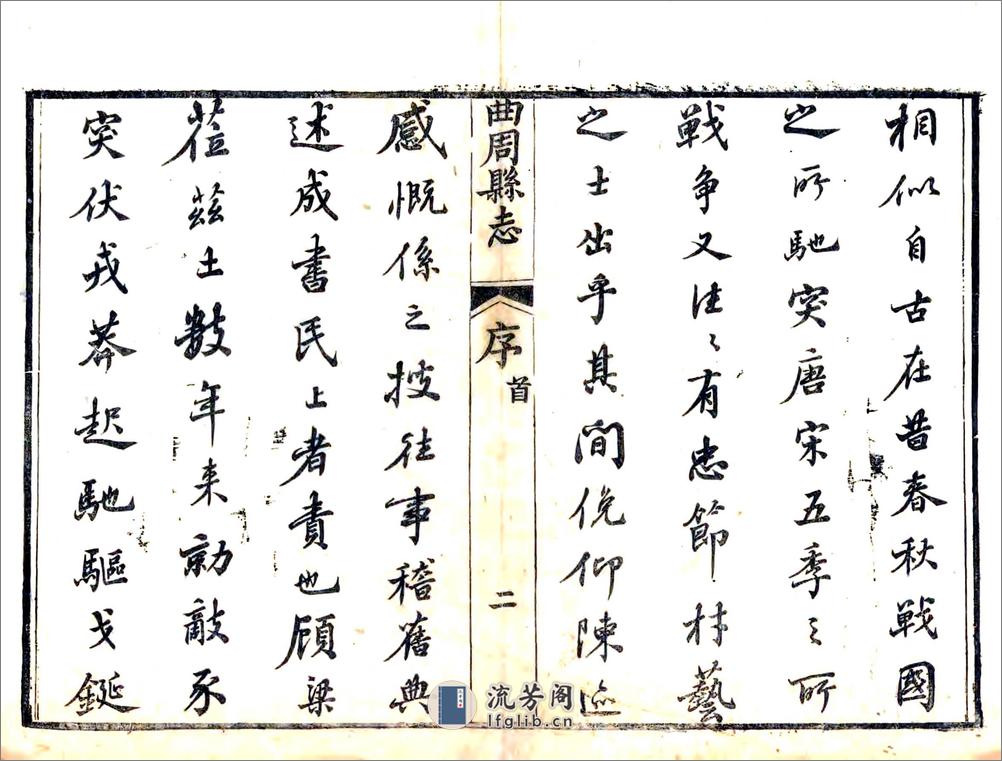 相似自古在昔春秋戰國
之所馳突唐宋五季之所
戰争又往〻有忠節材藝
之士出乎其間俛仰陳迹
曲周縣志
序首
二
感慨係之披往事稽舊典
述成書民上者責也顧梁
蒞茲土數年来勍敵豕
突伏戎莽起馳驅戈鋋
流芳阁
lfglib.cn